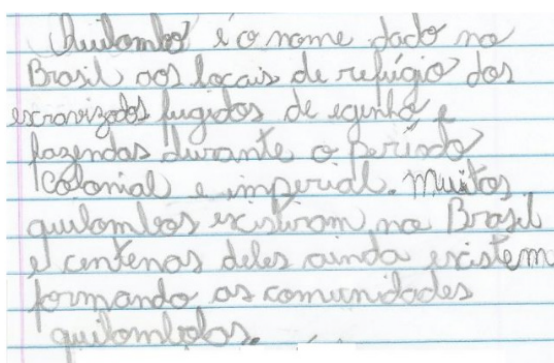 Quilombo é o nome dado no
Brasil aos locais de refúgio dos
escravizados fugidos de egenho e
fazendas durante o período
colonial e imperial. Muitos
quilombos existiram no Brasil
e centenas deles ainda existem
formando as comunidades
quilombolas.